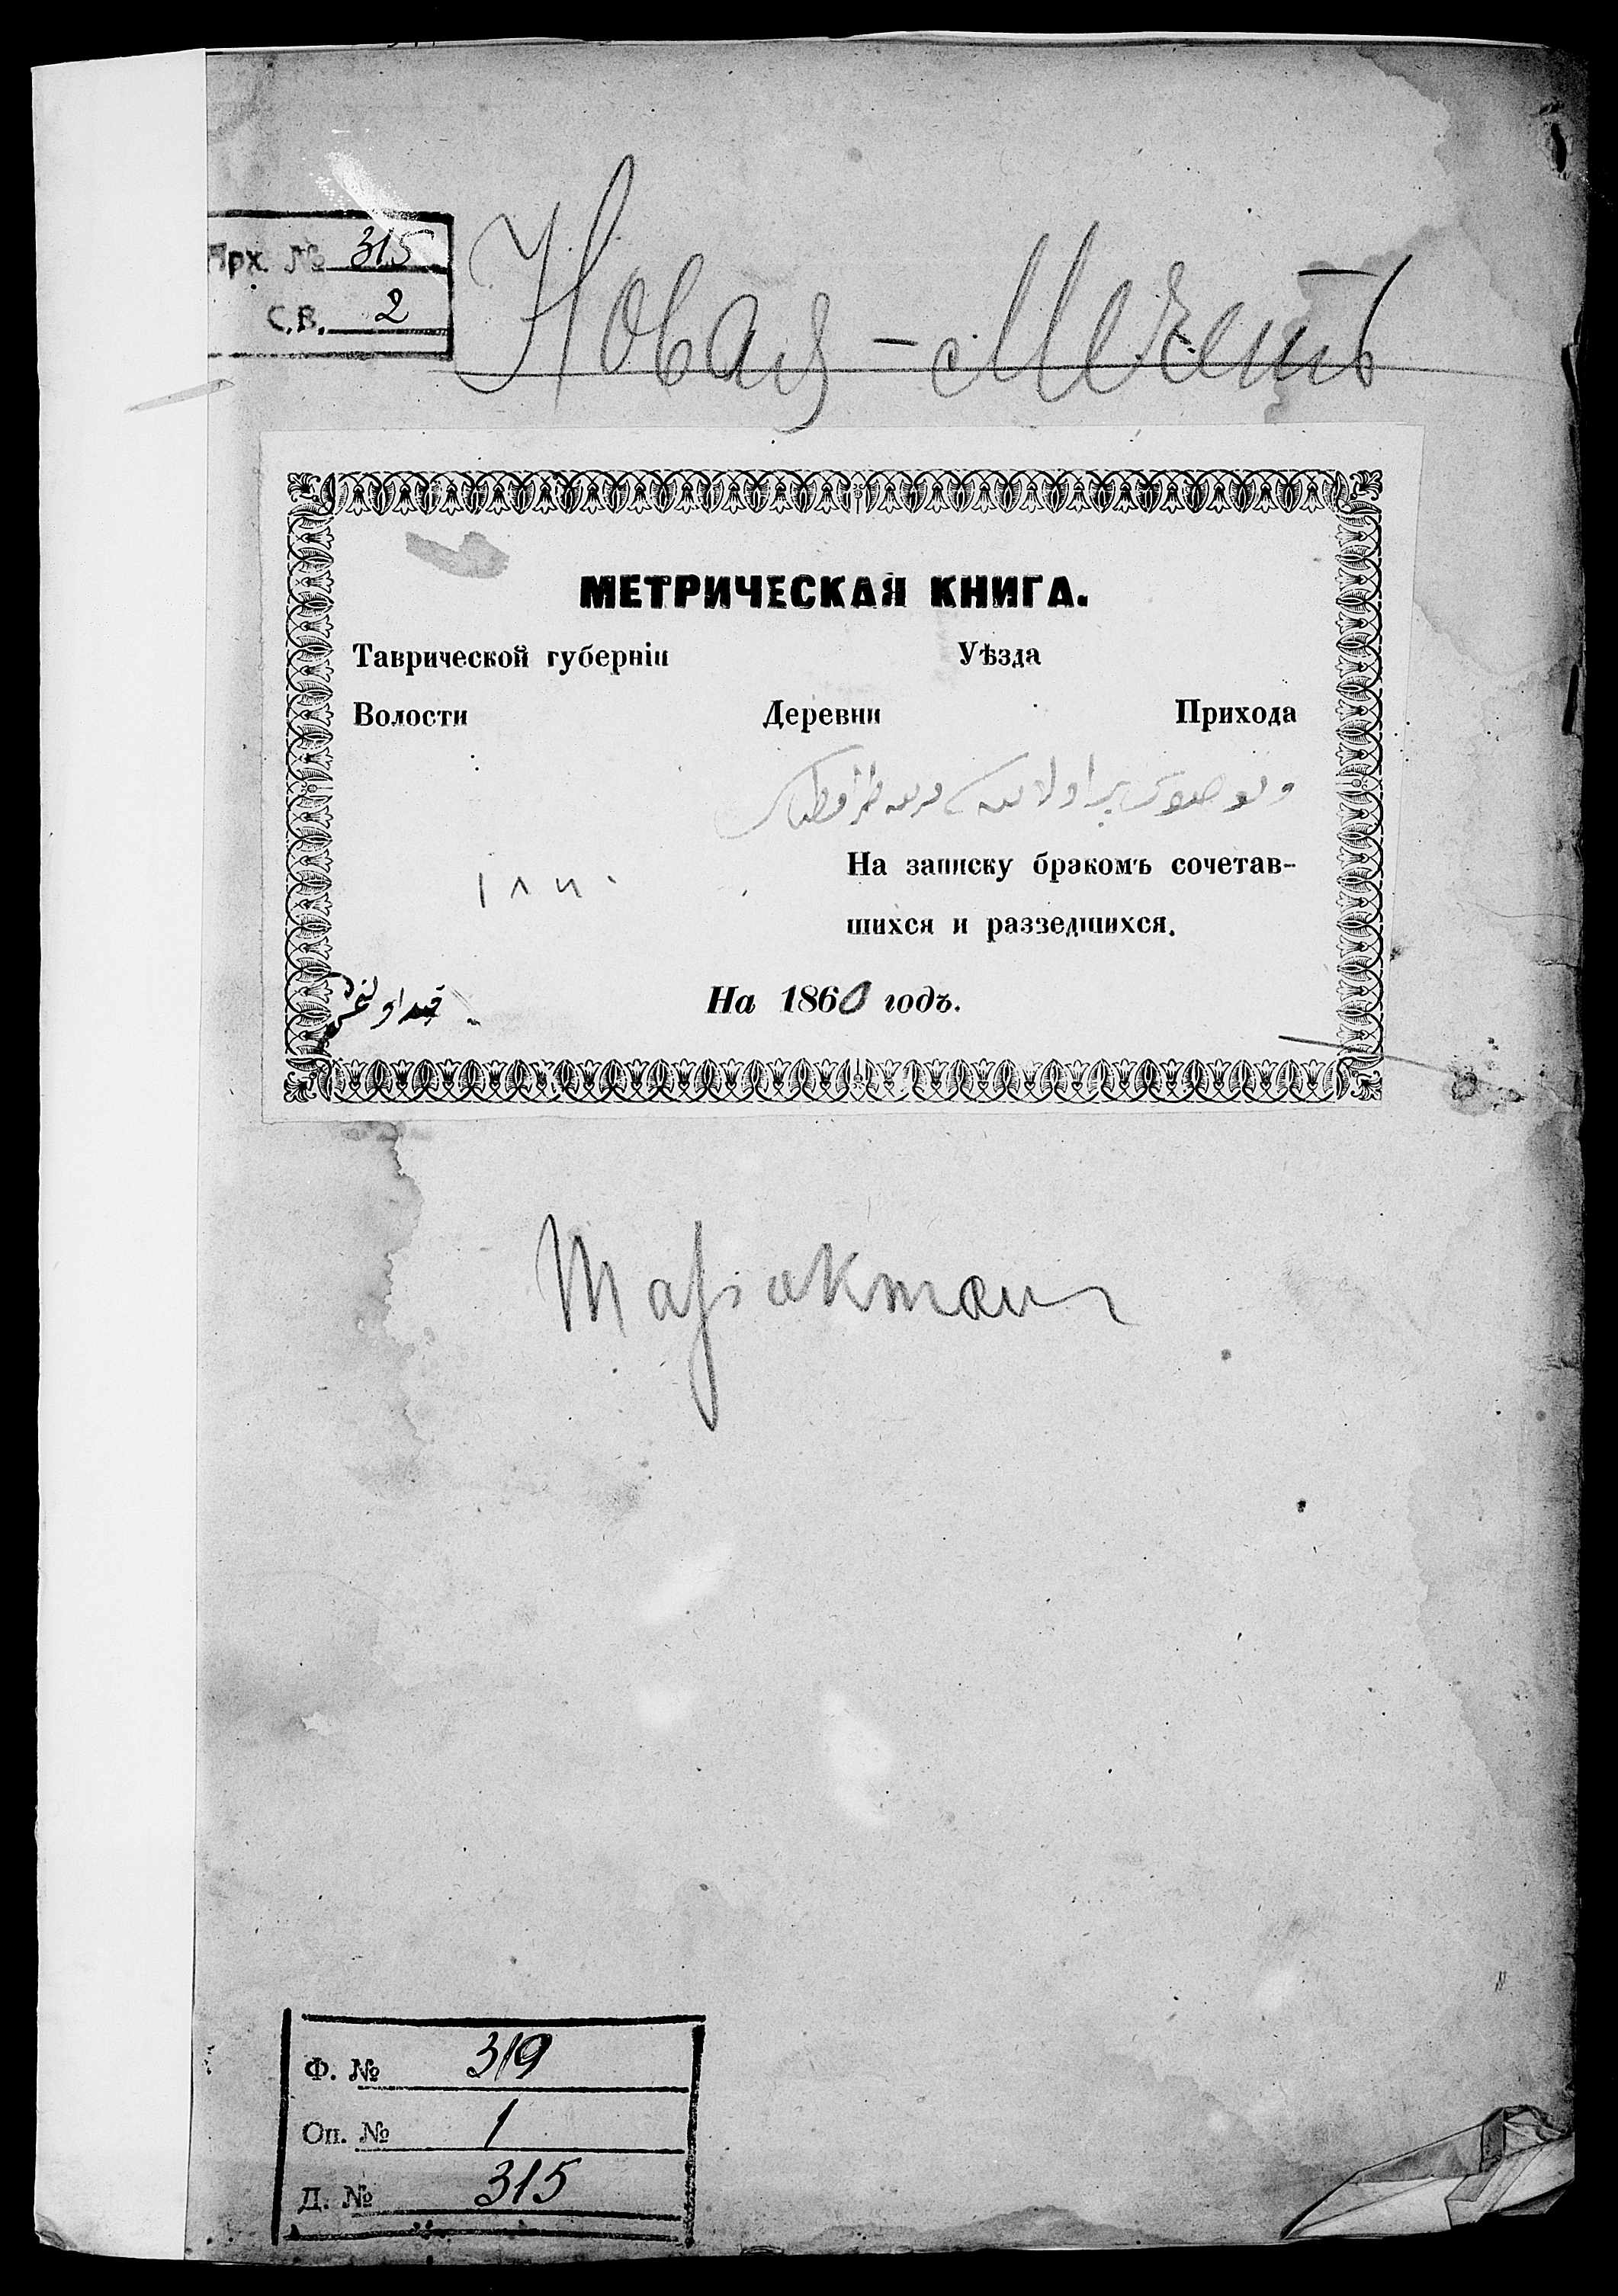 Арх. № 315
С.В. 2
Новая-Мечеть
МЕТРИЧЕСКАЯ КНИГА.
Таврической губерніи Уѣзда
Волости Деревни Прихода
На записку бракомъ сочетав-
шихся и разведшихся.
На 1860 годъ.
قيد اولنمش
Таракташ
Ф. № 319
Оп. № 1
Д. № 315